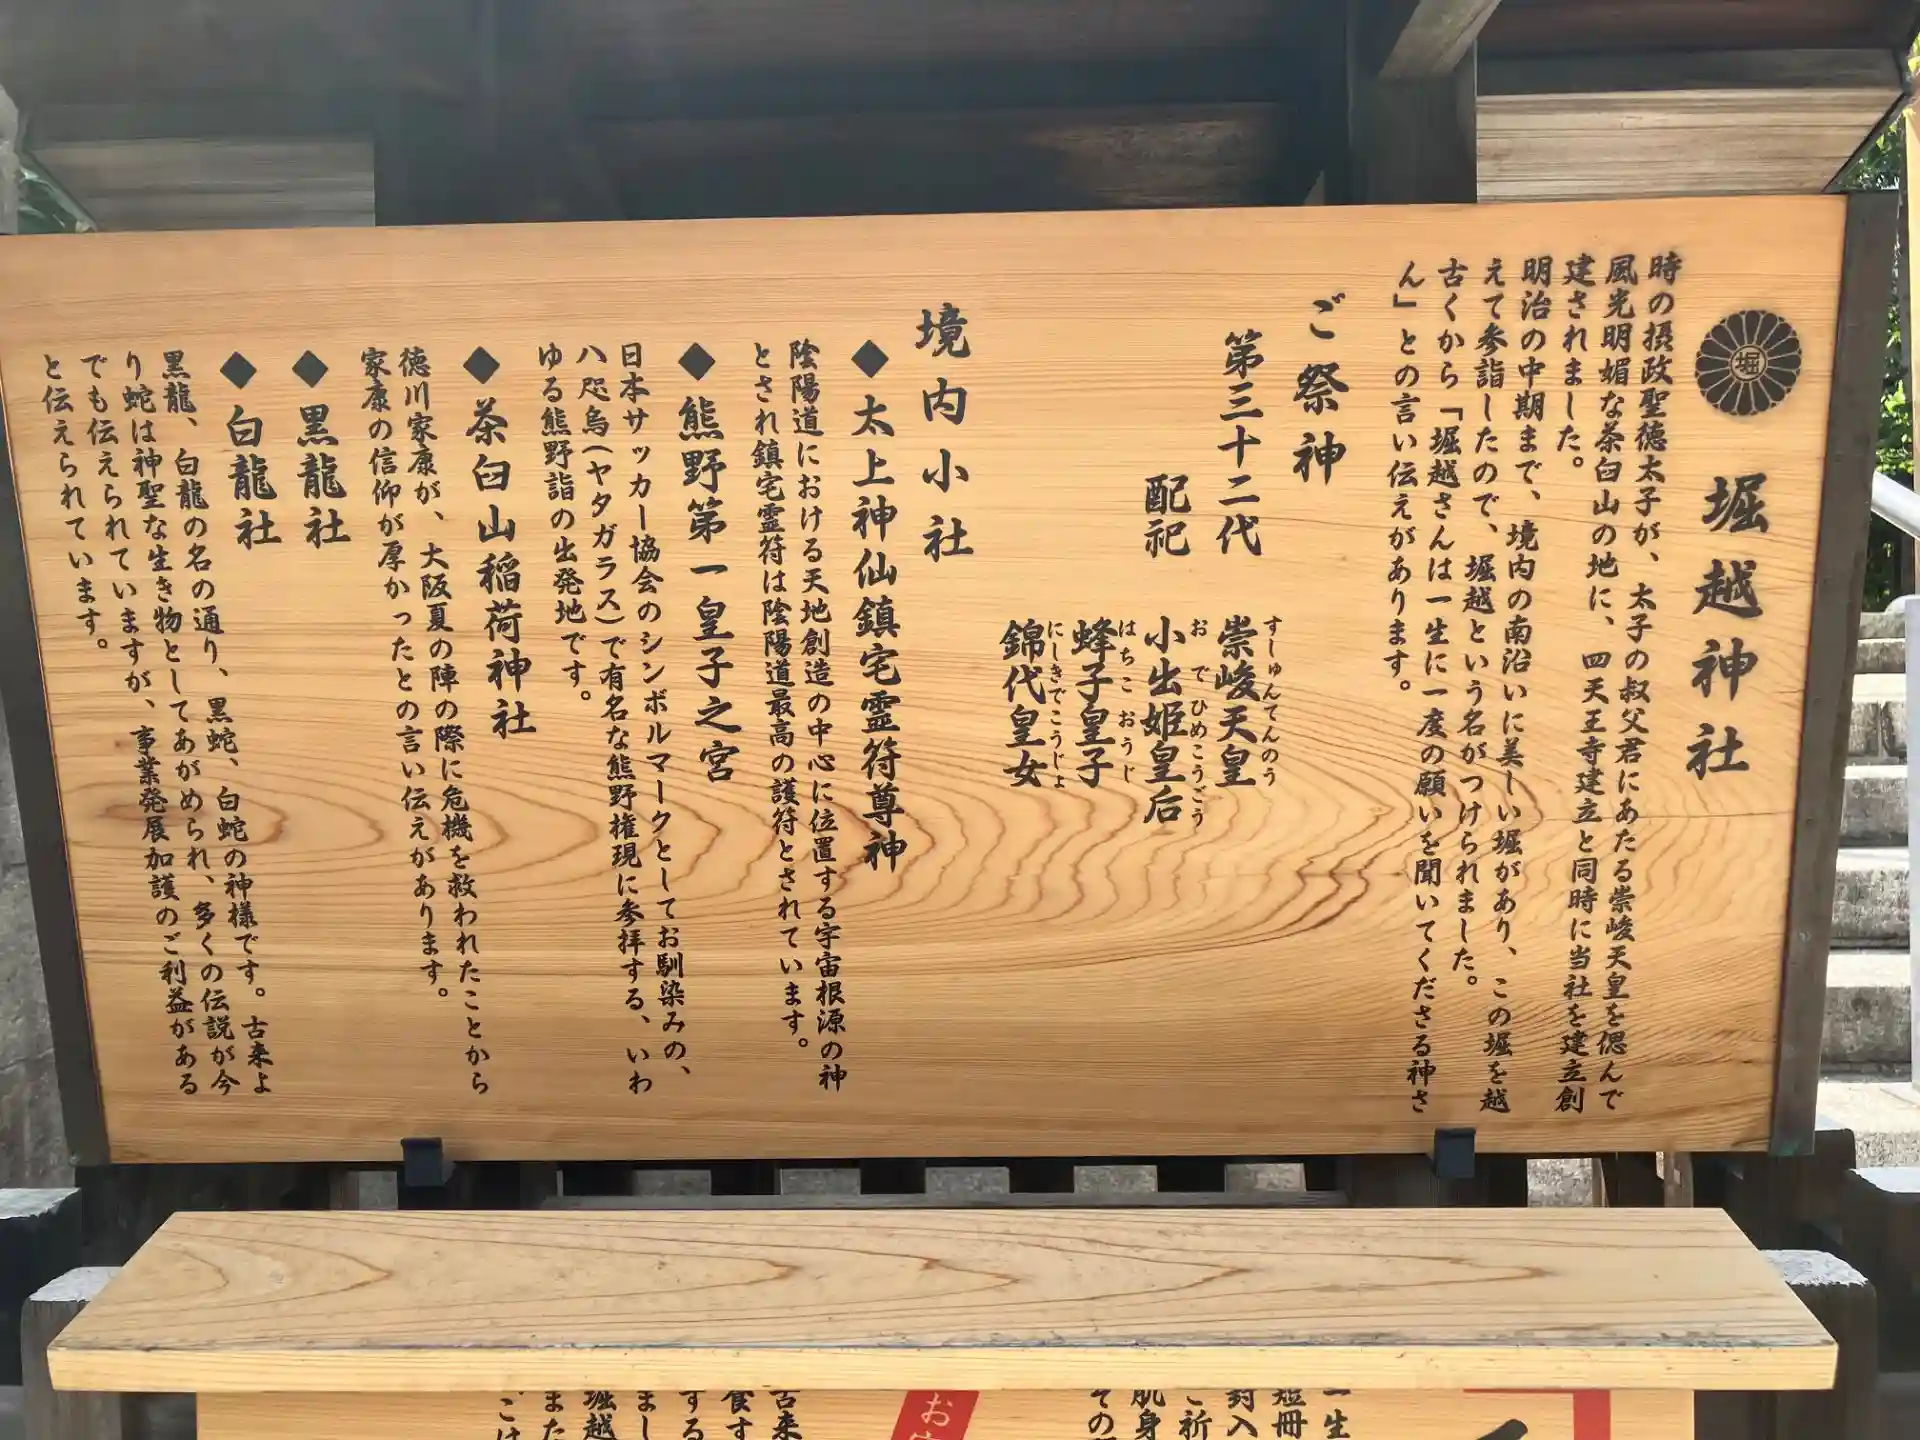 堀
堀越神社
時の摂政聖徳太子が、太子の叔父君にあたる崇峻天皇を偲んで
風光明媚な茶臼山の地に、四天王寺建立と同時に当社を建立創
建されました。
明治の中期まで、境内の南沿いに美しい堀があり、この堀を越
えて参詣したので、堀越という名がつけられました。
古くから「堀越さんは一生に一度の願いを聞いてくださる神さ
ん」との言い伝えがあります。
ご祭神
第三十二代 崇峻天皇
すしゅんてんのう
配祀 小出姫皇后
おでひめこうごう
蜂子皇子
はちこおうじ
錦代皇女
にしきでこうじょ
境内小社
◆太上神仙鎮宅霊符尊神
陰陽道における天地創造の中心に位置する宇宙根源の神
とされ鎮宅霊符は陰陽道最高の護符とされています。
◆熊野第一皇子之宮
日本サッカー協会のシンボルマークとしてお馴染みの、
八咫烏(ヤタガラス)で有名な熊野権現に参拝する、いわ
ゆる熊野詣の出発地です。
◆茶臼山稲荷神社
徳川家康が、大阪夏の陣の際に危機を救われたことから
家康の信仰が厚かったとの言い伝えがあります。
◆黒龍社
◆白龍社
黒龍、白龍の名の通り、黒蛇、白蛇の神様です。古来よ
り蛇は神聖な生き物としてあがめられ、多くの伝説が今
でも伝えられていますが、事業発展加護のご利益がある
と伝えられています。
一生
短冊
封入
ご祈
肌身
その
お
古来
食す
する
まし
堀越
また
ごけ